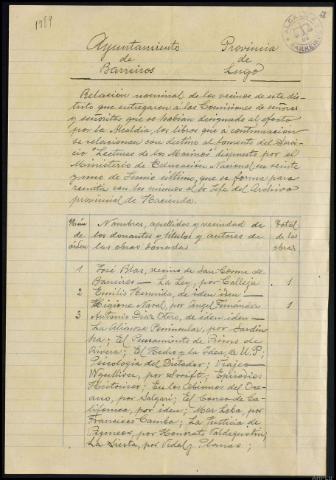 1989
Ayuntamiento Provincia
de de
Barreiros Lugo
Relación nominal de los vecinos de este dis-
trito que entregaron a las Comisiones de señoras
y señoritas que se habían designado al efecto
por la Alcaldía, los libros que a continuación
se relacionan con destino al fomento del Servi-
cio "Lecturas de los Marinos" dispuesto por el
Ministerio de Educación Nacional en veinte
y uno de Junio último, que se forma para
remitir con los mismos al Sr. Jefe del Archivo
provincial de Hacienda.
Núm. Nombres, apellidos y vecindad de Total
de los donantes y títulos y autores de de las
orden las obras donadas obras
1 José Blas, vecino de San Cosme de
Barreiros — La Ley, por Calleja . 1
2 Emilio Hermida, de iden iden —
Higiene Naval, por Angel Fernández 1
3 Antonio Díaz Otero, de iden, iden —
La Alianza Peninsular, por Sardin
ha; El Pensamiento de Primo de
Rivera; El Hecho y la Idea de U.P.;
Psicología del Dictador; Viajes
Historicos; En los Abismos del Oce-
ano, por Salgari; El Corso de Ca-
lifornia, por iden; Mar Loba, por
Francisco Camba; La Justicia de
Pyneces, por Honorato
La Sierta, por Vidal y Planas;